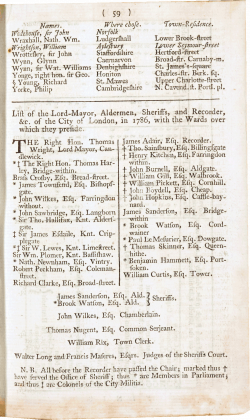 ( 59 )
Names. Where chose. Town-Residence.
Wodehouse, sir John Norfolk
Wraxhall, Nath. Wm. Ludgershall Lower Brook-street
Wrightson, William Aylesbury Lower Seymour-street
Wrottesley, sir John Staffordshire Hertford-street
Wynn, Glynn Caernarvon Broad-str. Carnaby-m.
Wynn, sir Wat. Williams Denbighshire St. James's-square
Yonge, right hon. sir Geo. Honiton Charles-str. Berk. sq.
Young, Richard St. Mawes Upper Charlotte-street
Yorke, Philip Cambridgeshire N. Cavend. st. Portl. pl.
List of the Lord-Mayor, Aldermen, Sheriffs, and Recorder,
&c. of the City of London, in 1786, with the Wards over
which they preside.
THE Right Hon. Thomas
Wright, Lord Mayor, Candlewick.
† The Right Hon. Thomas Harley, Bridge-within.
Brass Crosby, Esq. Bread-street.
* James Townsend, Esq. Bishopsgate.
* John Wilkes, Esq. Farringdon
without.
* John Sawbridge, Esq. Langborn
Sir Tho. Hallifax, Knt. Aldersgate.
† Sir James Esdaile, Knt. Cripplegate
* Sir W. Lewes, Knt. Limestreet.
Sir Wm. Plomer, Knt. Bassishaw.
* Nath. Newnham, Esq. Vintry.
Robert Peckham, Esq. Coleman-
street.
Richard Clarke, Esq. Broad-street.
James Adair, Esq. Recorder.
† Tho. Sainsbury, Esq. Billingsgate
† Henry Kitchin, Esq. Farringdon
within.
† John Burnell, Esq. Aldgate.
† William Gill, Esq. Walbrook.
† William Pickett, Esq. Cornhill.
† John Boydell, Esq. Cheap.
John Hopkins, Esq. Castle-baynard.
James Sanderson, Esq. Bridge-
without.
* Brook Watson, Esq. Cordwainer
* Paul Le Mesurier, Esq. Dowgate.
† Thomas Skinner, Esq. Queenhithe.
* Benjamin Hammett, Esq. Portsoken.
William Curtis, Esq. Tower.
James Sanderson, Esq. Ald. } Sheriffs.
* Brook Watson, Esq. Ald.
John Wilkes, Esq. Chamberlain.
Thomas Nugent, Esq. Common Serjeant.
William Rix, Town Clerk.
Walter Long and Francis Maseres, Esqrs. Judges of the Sheriffs Court.
N. B. All before the Recorder have passed the Chair; marked thus †
have served the Office of Sheriff; thus * are Members in Parliament;
and thus ‡ are Colonels of the City Militia.